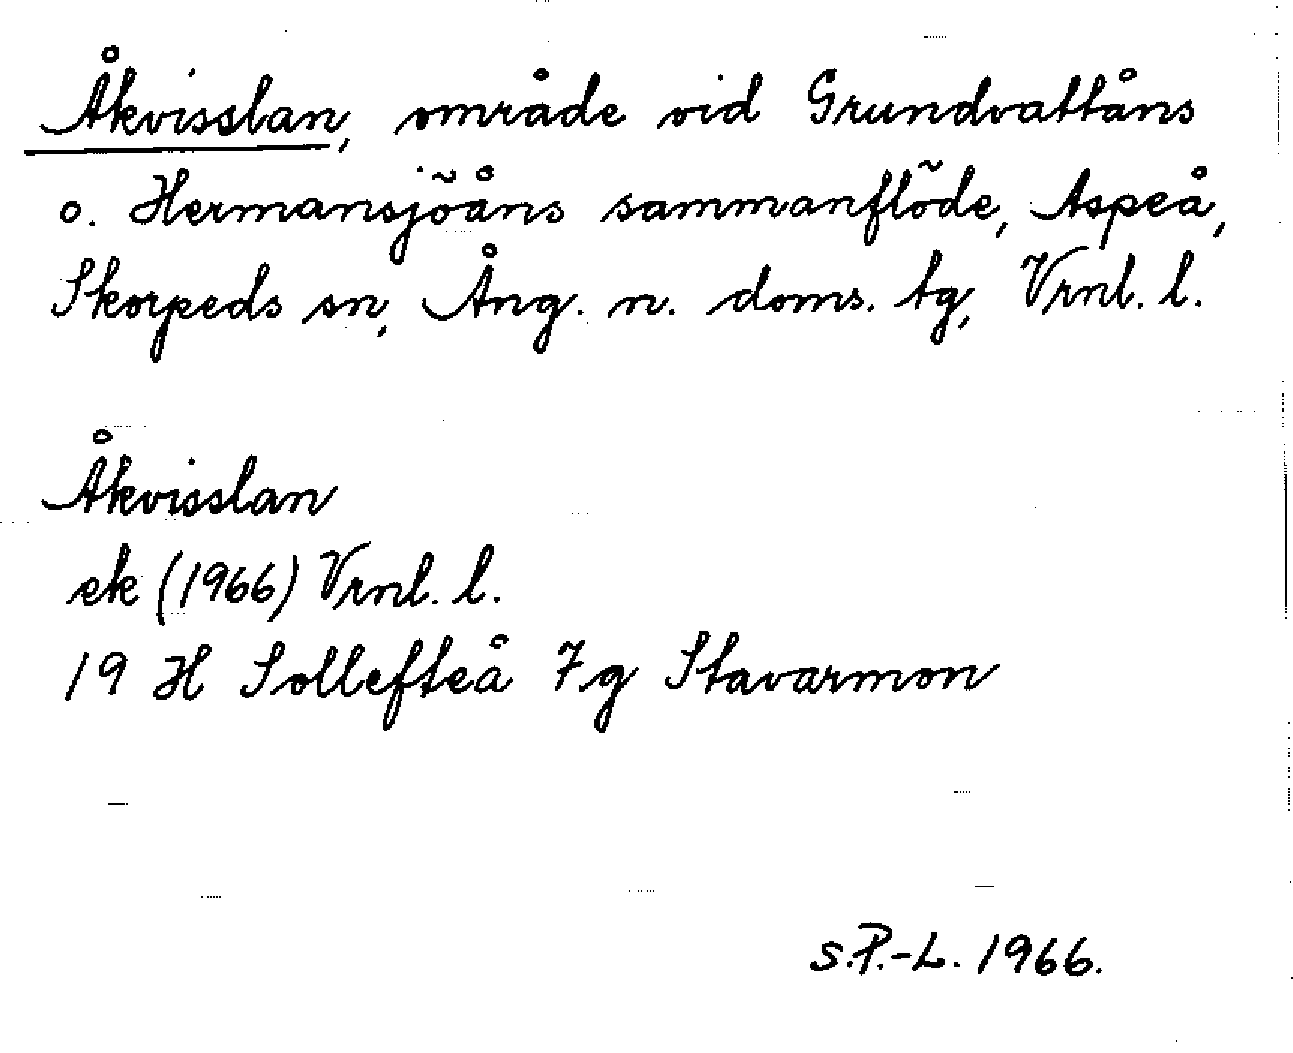 Åkvisslan, område vid Grundvattåns
o. Hermansjöåns sammanflöde, Aspeå,
Skorpeds sn, Ång. n. doms. tg, Vrnl. l.
Åkvisslan
ek (1966) Vrnl. l.
19 H Sollefteå 7g Stavarmon
S.P.-L. 1966.